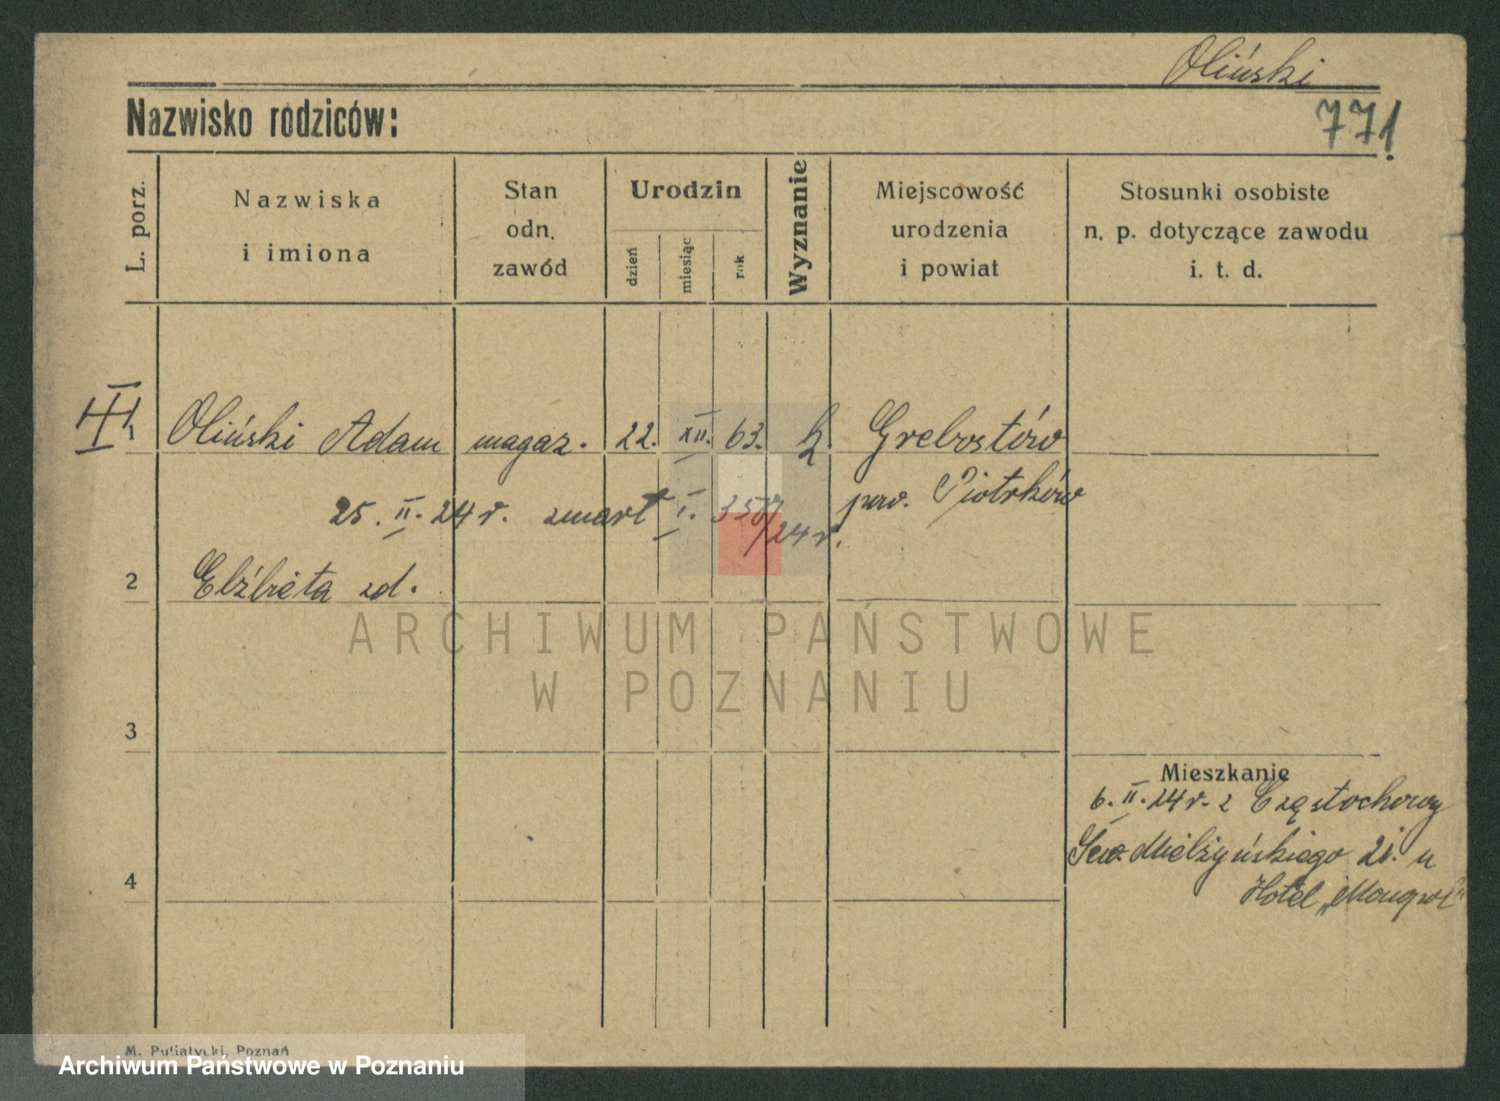 Oliński
Nazwisko rodziców:
771
L. porz.
Nazwiska
i imiona
Stan
odn.
zawód
Urodzin
dzień
miesiąc
rok
Wyznanie
Miejscowość
urodzenia
i powiat
Stosunki osobiste
n. p. dotyczące zawodu
i. t. d.
1 Oliński Adam magaz. 22. XII. 63. Grebostów
25. II. 24 r. zmarł I. 350/24 r. pow. Piotrków
2 Elżbieta zd.
ARCHIWUM PAŃSTWOWE
W POZNANIU
3
Mieszkanie
6. II. 24 r. z Częstochowy
Sew. Mielżyńskiego 21. u
4
Hotel
M. Putiatycki, Poznań
Archiwum Państwowe w Poznaniu